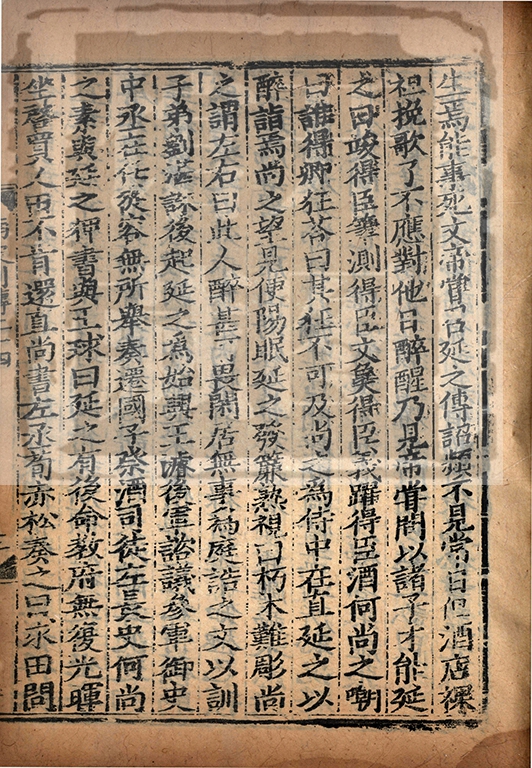 生焉能事死文帝嘗召延之傳詔頻不見常日但酒店裸
袒挽歌了不應對他日醉醒乃見帝嘗問以諸子才能延
之曰竣得臣筆測得臣文㚟得臣義躍得臣酒何尚之嘲
曰誰得卿狂荅曰其狂不可及尚之為侍中在直延之以
醉詣焉尚之望見便陽眠延之發簾熟視曰朽木難彫尚
之謂左右曰此人醉甚可畏閑居無事為庭誥之文以訓
子弟劉湛誅後起延之為始興王濬後軍諮議參軍御史
中丞在任從容無所舉奏遷國子祭酒司徒左長史何尚
之素與延之狎書與王球曰延之有後命教府無復光暉
坐啓買人田不肯還直尚書左丞荀赤松奏之曰求田問